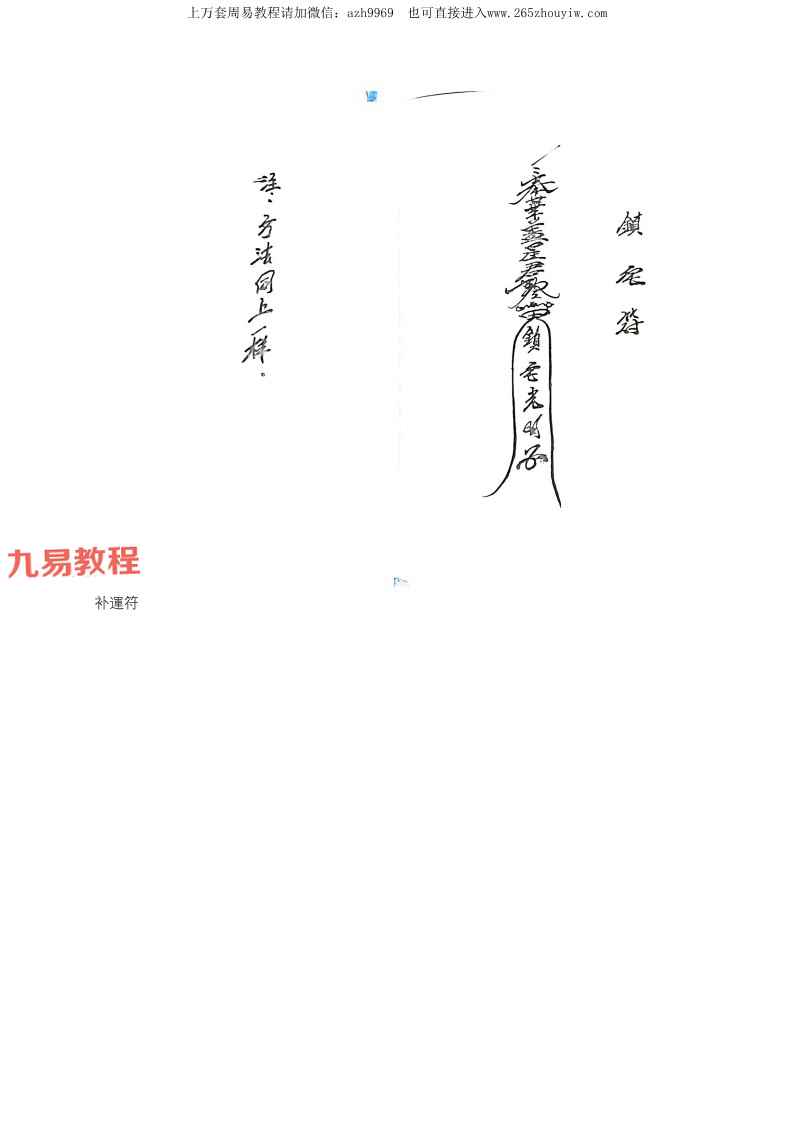 上万套周易教程请加微信：azh9969 也可直接进入www.265zhouyiw.com
鎮宅符
奉華蓋星君勅令
鎮宅光明
注：方法同上一样。
九易教程
补運符